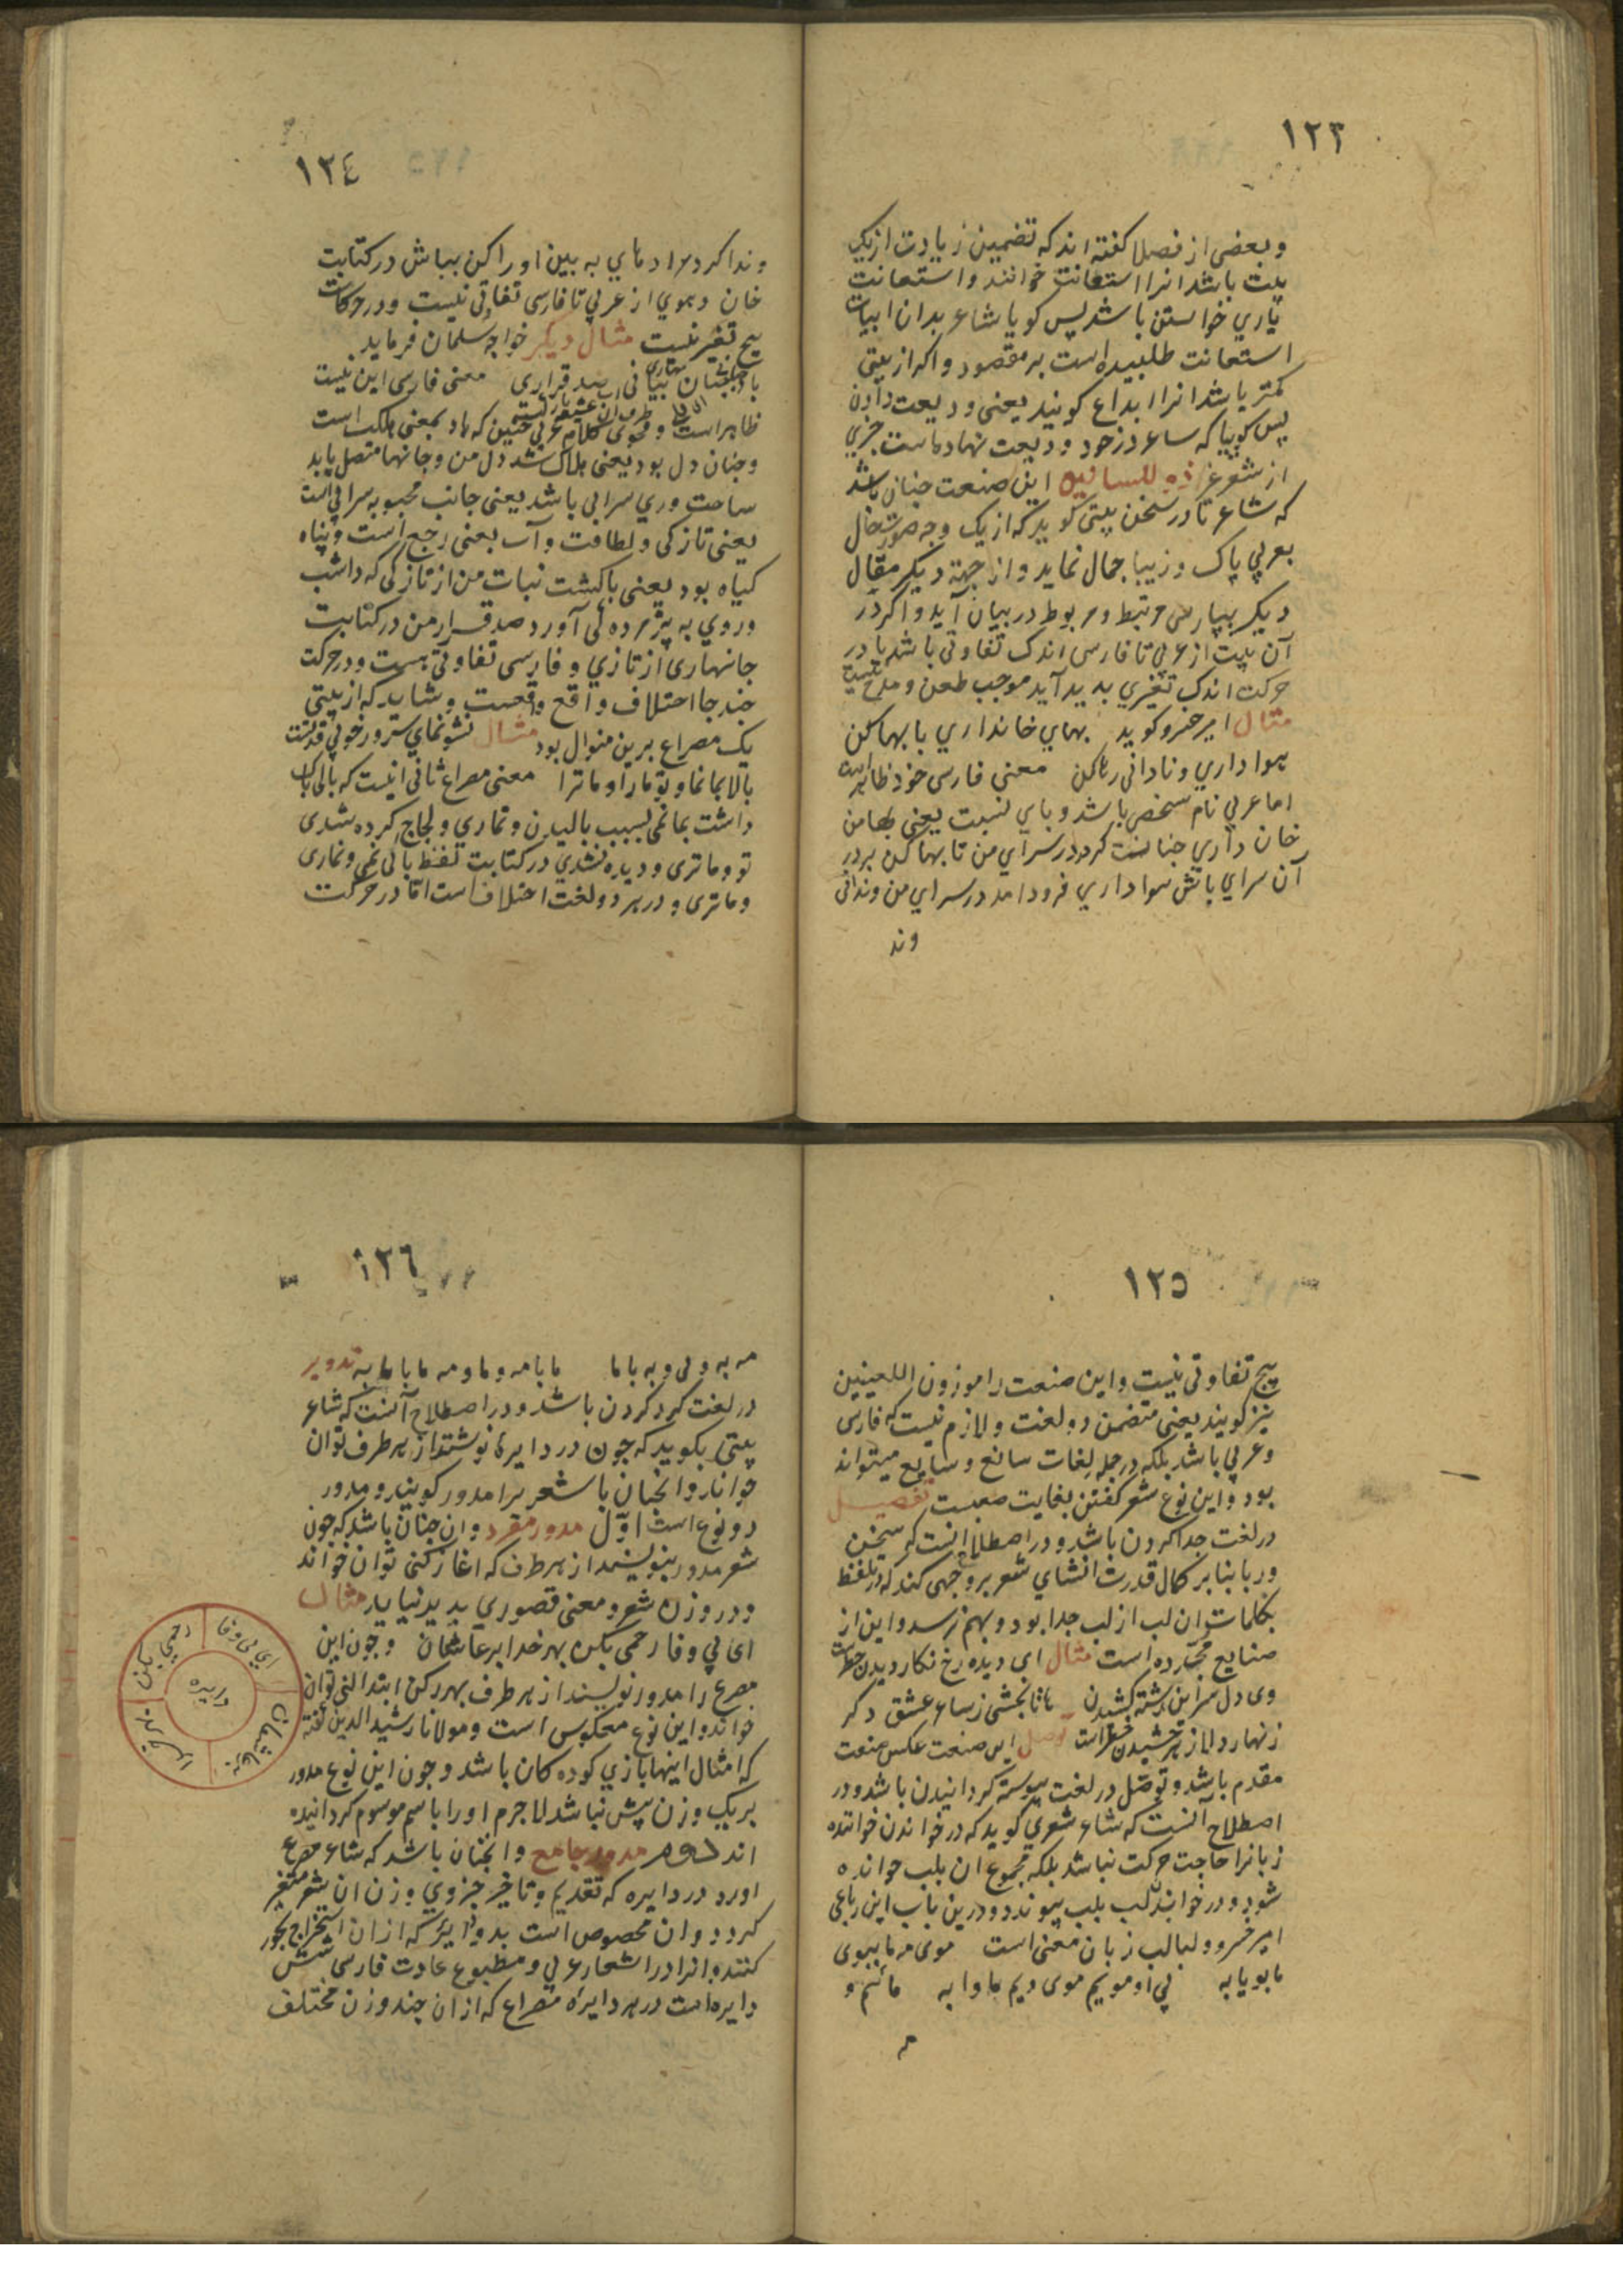 ١٢٣
وبعضی از فصلا کفته اند که تضمین زیادت ازیک
بیت باشد انرا استعانت خوانند و استعانت
یاري خواستن باشد پس کویا شاعر بدان ابیات
استعانت طلبیده است بر مقصود و اکر از بیتی
کمتر باشد انرا ابداع کویند یعنی ودیعت دادن
پس کوییا که ساعر در خود ودیعت نهاده است جزي
از شعر غیر این صنعت چنان باشد
که شاعر قادر سخن بیتی کوید که از یک وجه صورت حال
بعربي پاک و زیبا جمال نماید و از جهة دیکر مقال
دیکر بپارسی مرتبط و مربوط در بیان آید و اکر در
آن بیت از عربي تا فارسی اندک تفاوتی باشد یا در
حرکت اندک تغیري بدید آید موجب طعن و قدح نیست
مثال امیر خسرو کوید بهاي خانداري با بها کن
هوا داري و نادانی رها کن معنی فارسی خود ظاهر است
اما عربي نام سخص باشد و یاي نسبت یعنی بها من
خان داري جنانست که در سراي من تا بها کن بر در
آن سراي باتش هوا داري فرود امد در سراي من وندانی
وند
١٢٤
وندا کرد مرا دهاي به بین او را کن بباش در کتابت
خان و هوي از عربي تا فارسی تفاوتی نیست و در حرکات
هیج تغیر نیست مثال دیکر خواجه سلمان فرماید
معنی فارسی این بیت
ظاهر است و فحوی کلام عربي چنین که باد بمعنی هلک است
و جنان دل بود یعنی هلاک شد دل من و جانها متصل یابد
ساحت وري سرابي باشد یعنی جانب محبوبه سرابي است
یعنی تازکی و لطافت و آب بعنی رجع است و نباه
کیاه بود یعنی باکشت نبات من از تازکی که داشت
وروي به پژمرده کی آورد صد قرار من در کتابت
جانهاری از تازي و فارسی تفاوتی هست و در حرکت
چند جا اختلاف واقع واقعست و شاید که از بیتی
یک مصراع برین منوال بود مثال نشو نماي سترو ز خوبي قدتست
بالا بما نما و تو ما را و ما ترا معنی مصراع ثانی اینست که بالی باک
داشت بما نمی بسبب بالیدن و تماري و لجاج کرده شدی
تو و ماتری و دیده نشدي در کتابت لفظ بالی نمی و نماری
و ماتری و در هر دو لغت اختلاف است اما در حرکت
١٢٥
هیج تفاوتی نیست و این صنعت را موزون اللغیتین
نیز کویند یعنی متضمن دو لغت و لازم نیست که فارسی
و عربي باشد بلکه در جمله لغات سانع و سایع میتواند
بود و این نوع شعر کفتن بغایت صعبست تفصیل
در لغت جدا کردن باشد و در اصطلاح انست که سخن
ور با بنا بر کمال قدرت انشاي شعر بر وجهی کند که در تلفظ
بکلمات ان لب از لب جدا بود و بهم نرسد و این از
صنایع مجرده است مثال ای دیده رخ نکار دیدن خطرست
وی دل سر این رشته کشیدن تا نانجشی ز ساغر عشق دکر
زنهار دلا ز هر چشیدن خطر است توصل این صنعت عکس صنعت
مقدم باشد و توصل در لغت پیوسته کردانیدن باشد و در
اصطلاح آنست که شاعر شعري کوید که در خواندن خواننده
زبانرا حاجت حرکت نباشد بلکه مجموع ان بلب خوانده
شود و در خواندن لب بلب پیوندد و درین باب این رباعی
امیر خسرو و لبالب زبان معنی است موی مه ما ببوی
ما بویا به پي او مویم موی ویم ما وا به مائیم و
مه
١٢٦
مه به و لی و به با ما ما با مه و ما و مه ما با ما به تدویر
در لغت کرد کردن باشد و در اصطلاح آنست که شاعر
بیتی بکوید که چون در دایره نوشتند از هر طرف توان
خواند و انجنان باشعر را مدور کویند و مدور
دو نوع است اوّل مدور مفرد و ان جنان باشد که چون
شعر مدور بنویسند از هر طرف که اغاز کنی توان خواند
و در وزن شعر و معنی قصوری بدید نیاید مثال
ای بي وفا رحمی بکن بهر خدا بر عاشقان و چون این
مصرع را مدور نویسند از هر طرف بهر رکن ابتدا کنی توان
خواند و این نوع معکوس است و مولانا رشید الدین کفته
که امثال اینها بازي کوده کان باشد و چون این نوع مدور
بر یک وزن پیش نباشد لا جرم او را باسم موسوم کردانیده
اند دوم مدور جامع و انجنان باشد که شاعر مصرع
اورد در دایره که تقدیم و تاخیر جزوي وزن ان شعر متغیر
کردد و ان مخصوص است بدوایر که از ان استخراج بحور
کنند و انرا در اشعار عربي و مطبوع عادت فارسی شش
دایره است در هر دایره مصراع که از ان چند وزن مختلف
ای بی وفا
رحمی بکن
بهر خدا
بر عاشقان
دایره